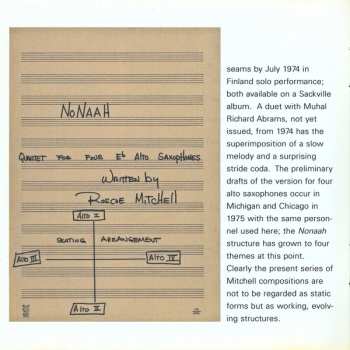 NONAAH
QUARTET FOR FOUR Eb ALTO SAXOPHONES
WRITTEN by
ROSCOE MITCHELL
ALTO I
SEATING ARRANGEMENT
ALTO III
ALTO IV
ALTO II
seams by July 1974 in
Finland solo performance;
both available on a Sackville
album. A duet with Muhal
Richard Abrams, not yet
issued, from 1974 has the
superimposition of a slow
melody and a surprising
stride coda. The preliminary
drafts of the version for four
alto saxophones occur in
Michigan and Chicago in
1975 with the same person-
nel used here; the Nonaah
structure has grown to four
themes at this point.
Clearly the present series of
Mitchell compositions are
not to be regarded as static
forms but as working, evolv-
ing structures.